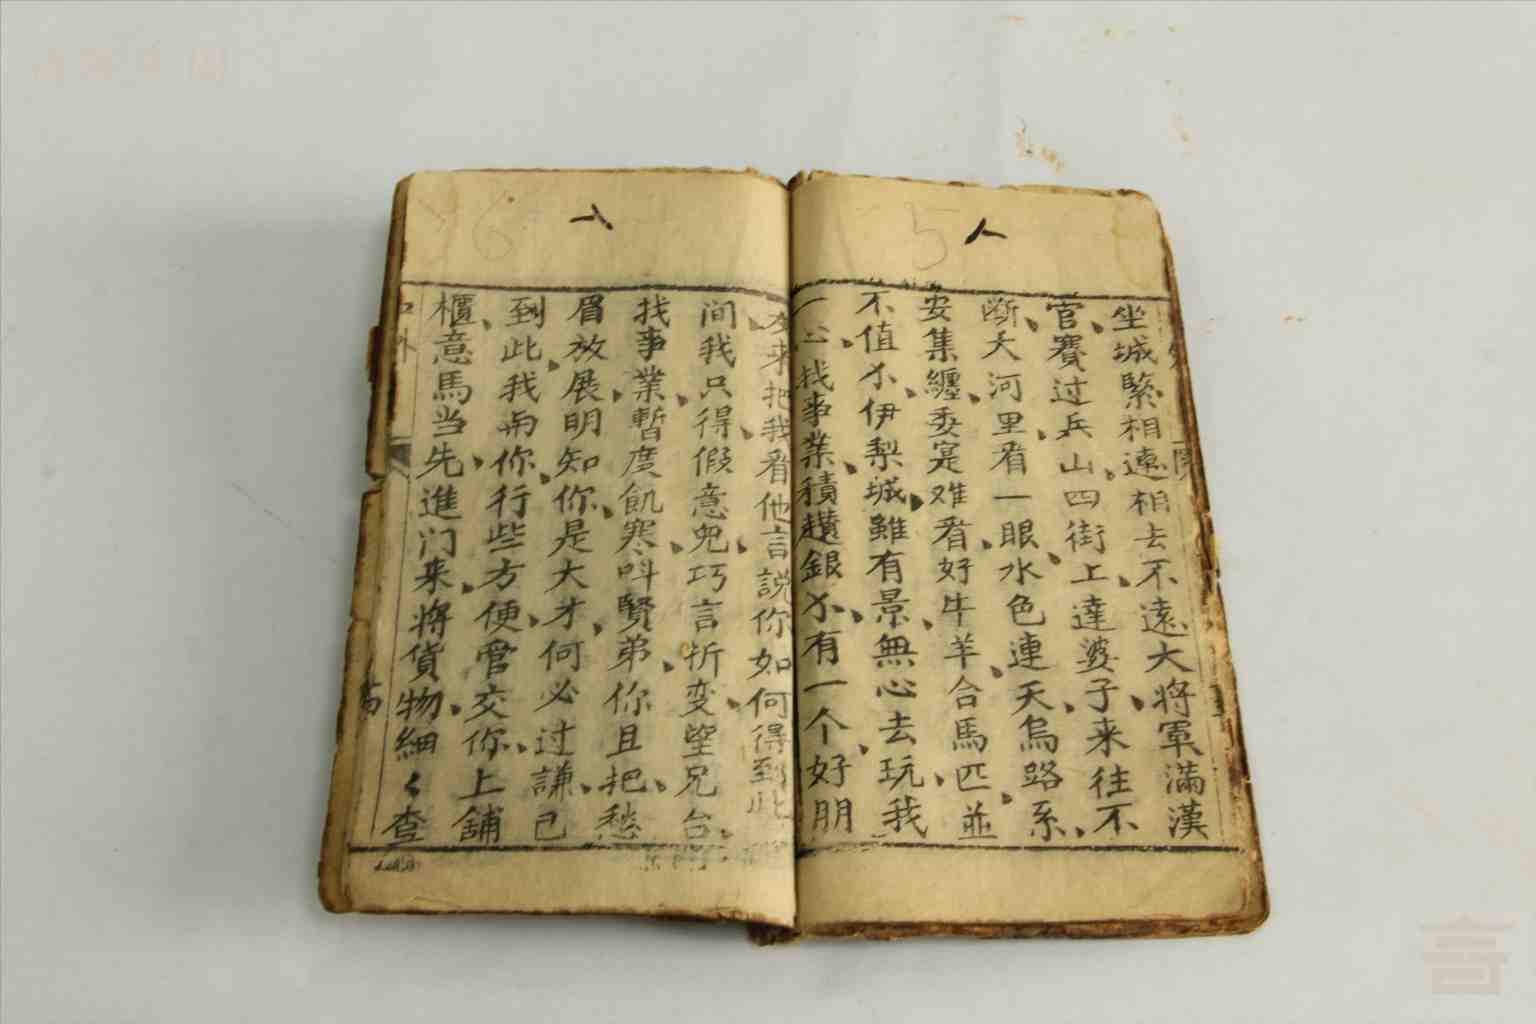 坐城緊相連相去不遠大将軍滿漢
官賽过兵山四街上達婆子来往不
断大河里看一眼水色連天烏路系
安集纏委寔难看好牛羊合馬匹並
不值㐰伊梨城雖有景無心去玩我
一心找事業積趱銀㐰有一个好朋
友來把我看他言説你如何得到此
间我只得假意兜巧言折变望兄台
找事業暫度飢寒呌賢弟你且把愁
眉放展明知你是大才何必过謙己
到此我而你行些方便管交你上舖
櫃意馬当先進门来将貨物細々查
5
6